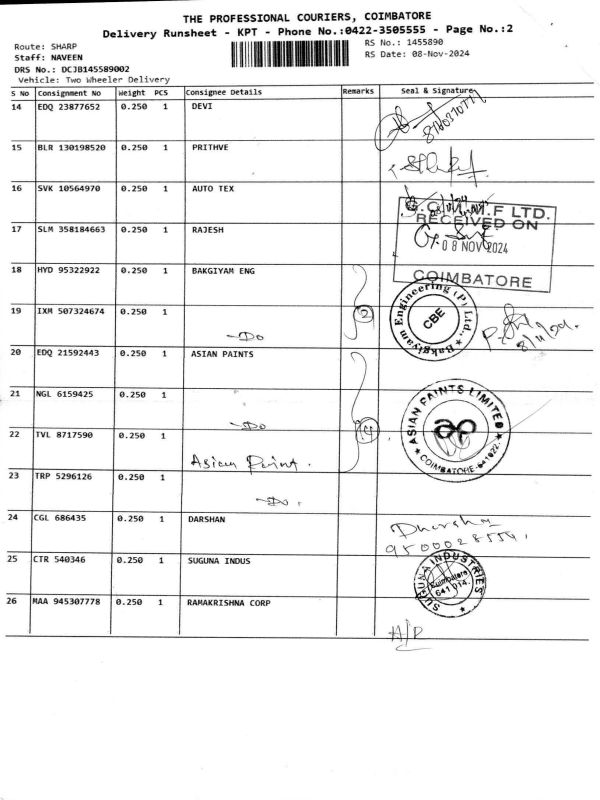 THE PROFESSIONAL COURIERS, COIMBATORE
Delivery Runsheet - KPT - Phone No.:0422-3505555 - Page No.:2
Route: SHARP
Staff: NAVEEN
DRS No.: DCJB145589002
Vehicle: Two Wheeler Delivery
RS No.: 1455890
RS Date: 08-Nov-2024
S No Consignment No Weight PCS Consignee Details Remarks Seal & Signature
14 EDQ 23877652 0.250 1 DEVI
15 BLR 130198520 0.250 1 PRITHVE
16 SVK 10564970 0.250 1 AUTO TEX
RECEIVED ON
17 SLM 358184663 0.250 1 RAJESH
08 NOV 2024
COIMBATORE
18 HYD 95322922 0.250 1 BAKGIYAM ENG
Bakgiyam Engineering (P) Ltd.,
CBE
19 IXM 507324674 0.250 1
-Do
2
8/11/24
20 EDQ 21592443 0.250 1 ASIAN PAINTS
21 NGL 6159425 0.250 1
-Do
ASIAN PAINTS LIMITED
ap
COIMBATORE-641022.
22 TVL 8717590 0.250 1
4
Asian Paint.
23 TRP 5296126 0.250 1
-Do.
24 CGL 686435 0.250 1 DARSHAN
25 CTR 540346 0.250 1 SUGUNA INDUS
SUGUNA INDUSTRIES
Coimbatore
641 014.
26 MAA 945307778 0.250 1 RAMAKRISHNA CORP